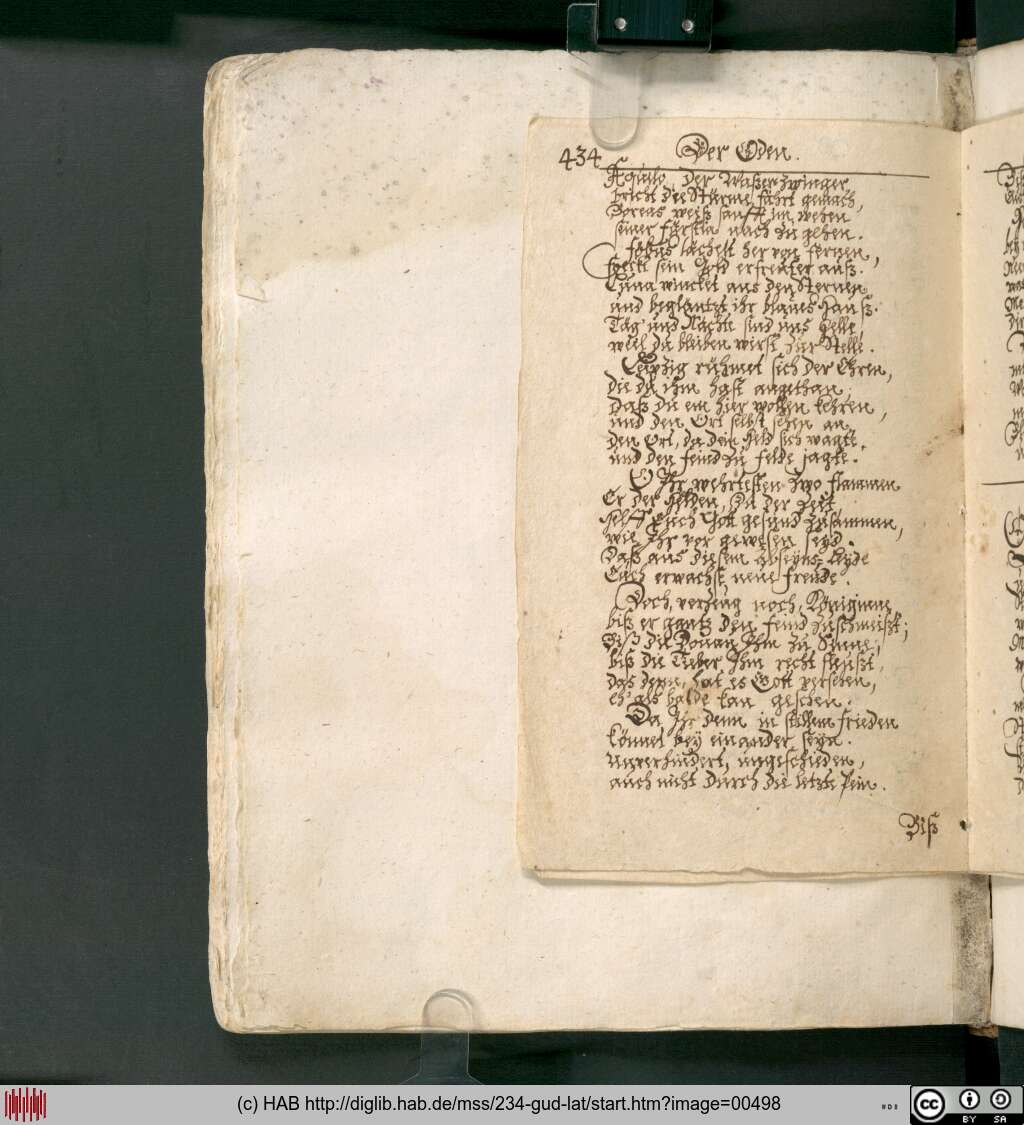 434 Der Oden.
Aquilo, der Waßerzwinger
bricht die Stürme, fährt gemach,
Boreas weiß sanfft im wehen
seiner Fürstin nach zu gehen.
Föbus lächelt her von fernen,
steckt sein Gold erfreuter auß.
Luna wincket aus den Sternen
und begläntzt ihr blaues Hauß.
Tag und Nächte sind uns helle,
weil du bleiben wirst zur Stelle.
Leipzig rühmet sich der Ehren,
die du ihm hast angethan,
daß du ein hier wollen kehren,
und den Ort selbst sehen an,
den Ort, da dein Held sich wagte,
und den feind zu felde jagte.
O Ihr wehrtesten zwo flammen
Er der Helden, Du der Zeit
Helff Euch Gott gesund zusammen,
wie Ihr vor gewesen seyd.
Daß aus diesem abseyns-Leyde
Euch erwachse neue freude.
Doch, verzeug noch, Königinne,
biß er gantz den feind zuschmeißt;
Biß die Donau Ihm zu Sinne,
biß die Tieber Ihm recht fleußt,
das denn, hat es Gott versehen,
eh' als balde kan geschehen.
Da Ihr denn in stillem frieden
könnet bey einander seyn.
unverhindert, ungeschieden,
auch nicht durch die letzte Pein.
Biß
(c) HAB http://diglib.hab.de/mss/234-gud-lat/start.htm?image=00498
cc BY SA